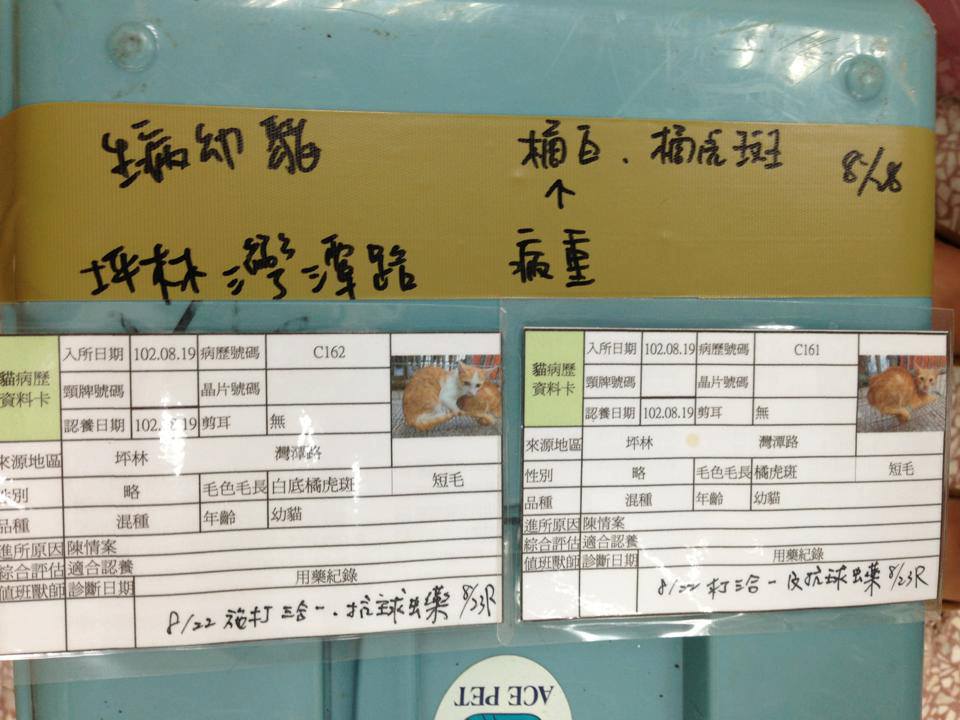 生病幼貓 橘白、橘虎斑 8/28
↑
坪林灣潭路 病重
貓病歷資料卡
入所日期 102.08.19 病歷號碼 C162
頸牌號碼 晶片號碼
認養日期 102.08.19 剪耳 無
來源地區 坪林 灣潭路
性別 略 毛色毛長 白底橘虎斑 短毛
品種 混種 年齡 幼貓
進所原因 陳情案
綜合評估 適合認養
值班獸師 診斷日期 用藥紀錄
8/22 施打三合一.抗球虫藥 8/23R
貓病歷資料卡
入所日期 102.08.19 病歷號碼 C161
頸牌號碼 晶片號碼
認養日期 102.08.19 剪耳 無
來源地區 坪林 灣潭路
性別 略 毛色毛長 橘虎斑 短毛
品種 混種 年齡 幼貓
進所原因 陳情案
綜合評估 適合認養
值班獸師 診斷日期 用藥紀錄
8/22 打三合一 及抗球虫藥 8/23R
ACE PET